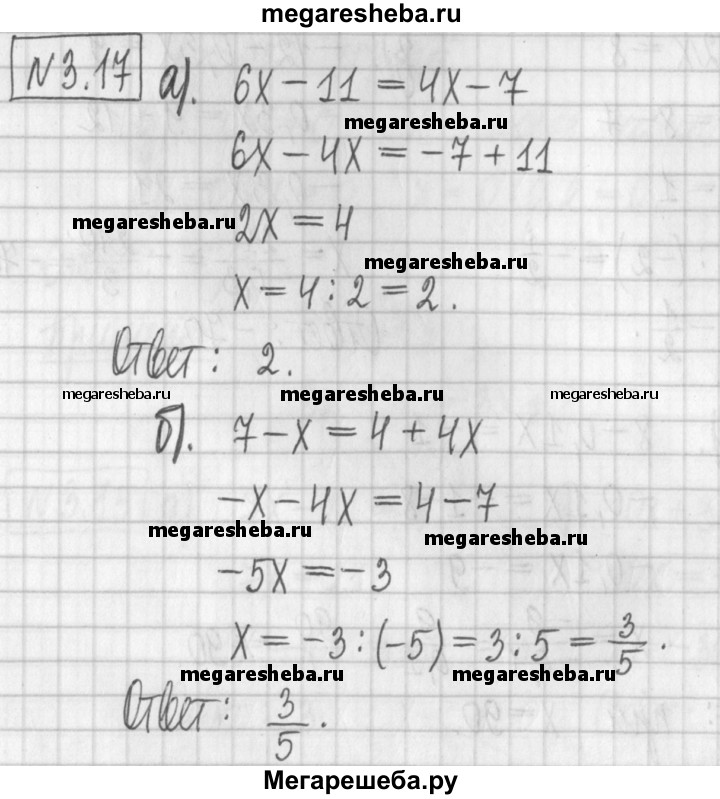 megaresheba.ru
№3.17 а). 6x − 11 = 4x − 7
megaresheba.ru
6x − 4x = −7 + 11
megaresheba.ru 2x = 4
megaresheba.ru
x = 4 : 2 = 2.
Ответ: 2.
megaresheba.ru megaresheba.ru megaresheba.ru
б). 7 − x = 4 + 4x
−x − 4x = 4 − 7
megaresheba.ru megaresheba.ru
−5x = −3
x = −3 : (−5) = 3 : 5 = 3/5.
megaresheba.ru megaresheba.ru
Ответ: 3/5.
Мегарешеба.ру